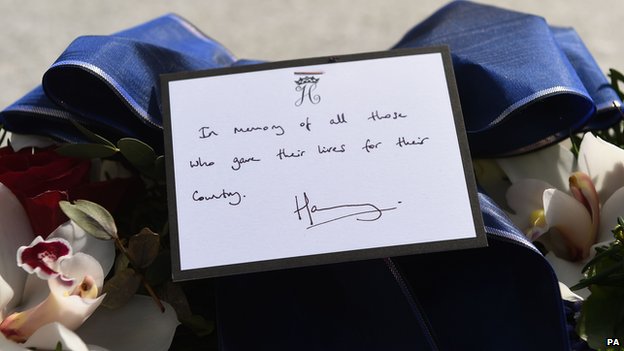 H
In memory of all those
who gave their lives for their
Country.
Harry.
PA